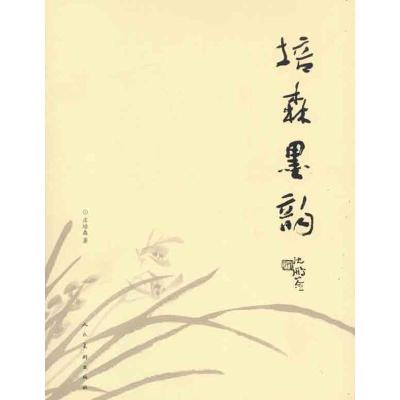 培森墨韵
沈鹏题
◎庄培森 著
人民美术出版社